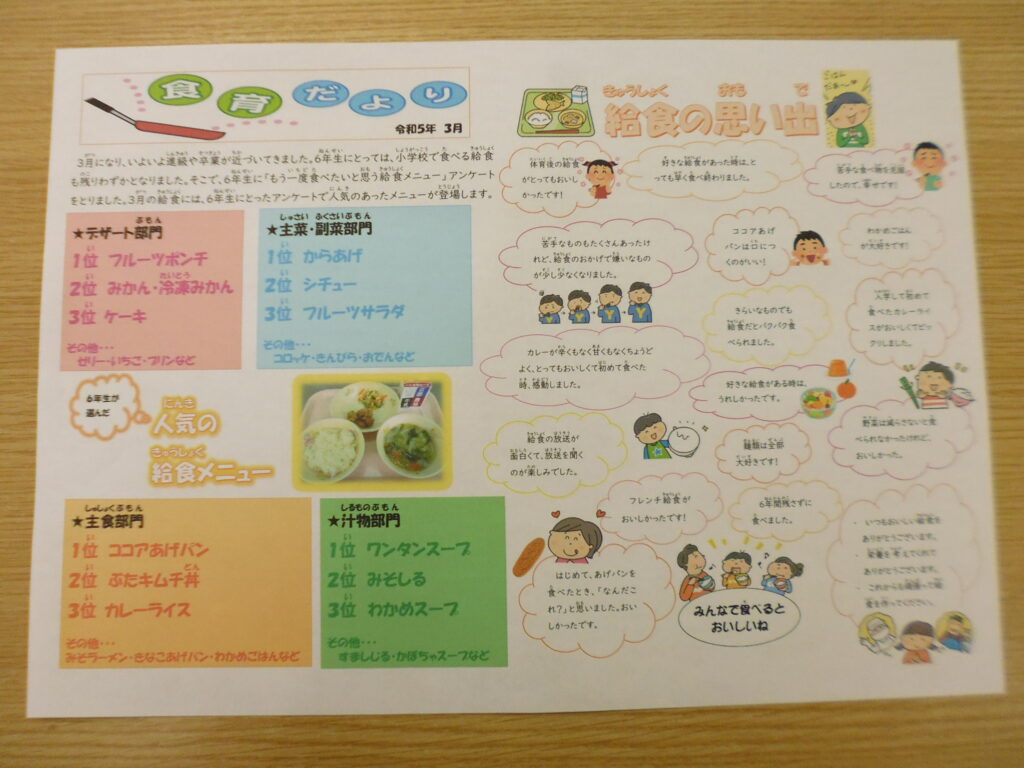 食育だより
令和5年 3月
3月になり、いよいよ進級や卒業が近づいてきました。6年生にとっては、小学校で食べる給食
も残りわずかとなりました。そこで、6年生に「もう一度食べたいと思う給食メニュー」アンケート
をとりました。3月の給食には、6年生にとったアンケートで人気のあったメニューが登場します。
★デザート部門
1位 フルーツポンチ
2位 みかん・冷凍みかん
3位 ケーキ
その他…
ゼリー・いちご・プリンなど
★主菜・副菜部門
1位 からあげ
2位 シチュー
3位 フルーツサラダ
その他…
コロッケ・きんぴら・おでんなど
6年生が
選んだ
人気の
給食メニュー
★主食部門
1位 ココアあげパン
2位 ぶたキムチ丼
3位 カレーライス
その他…
みそラーメン・きなこあげパン・わかめごはんなど
★汁物部門
1位 ワンタンスープ
2位 みそしる
3位 わかめスープ
その他…
すましじる・かぼちゃスープなど
給食の思い出
体育後の給食
がとってもおいし
かったです!
好きな給食があった時は、と
っても早く食べ終わりました。
苦手な食べ物を克服
したので、幸せです!
苦手なものもたくさんあったけ
れど、給食のおかげで嫌いなもの
が少し少なくなりました。
ココアあげ
パンは口につ
くのがいい!
わかめごはん
が大好きです!
きらいなものでも
給食だとパクパク食
べられました。
入学して初めて
食べたカレーライ
スがおいしくてビッ
クリしました。
カレーが辛くもなく甘くもなくちょうど
よく、とってもおいしくて初めて食べた
時、感動しました。
好きな給食がある時は、
うれしかったです。
給食の放送が
面白くて、放送を聞く
のが楽しみでした。
麺類は全部
大好きです!
野菜は減らさないと食
べられなかったけれど、
おいしかった。
フレンチ給食が
おいしかったです!
6年間残さずに
食べました。
はじめて、あげパンを
食べたとき、「なんだこ
れ?」と思いました。おい
しかったです。
みんなで食べると
おいしいね
・ いつもおいしい給食を
ありがとうございます。
・ 栄養を考えてくれて
ありがとうございます。
・ これからも頑張って給
食を作ってください。